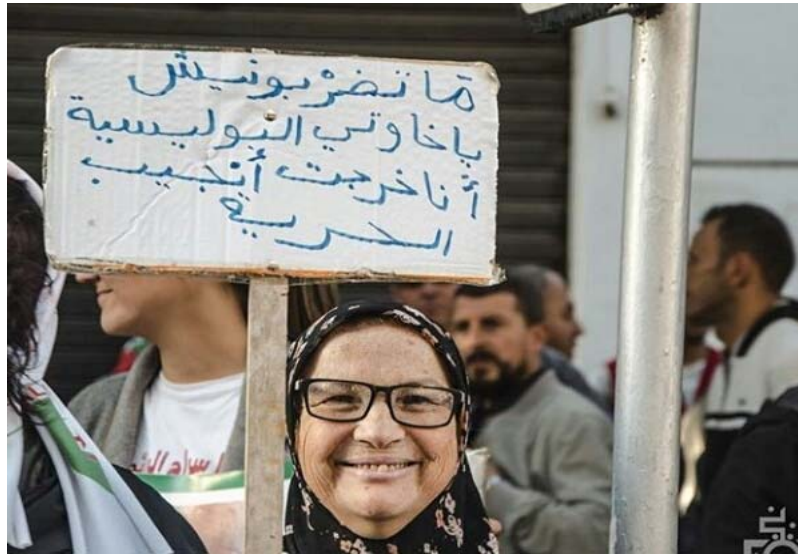 ما تضرْبونيش
ياخاوتي البوليسية
أنا خرجت أنجيب
الحرية